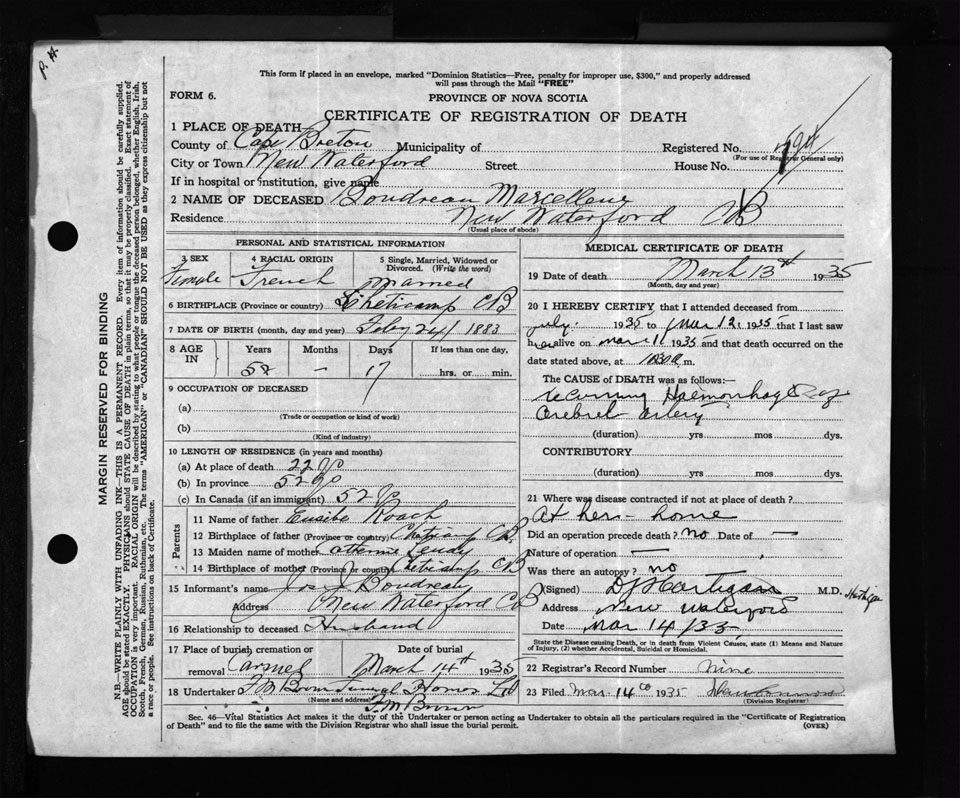 P. H.
This form if placed in an envelope, marked "Dominion Statistics—Free, penalty for improper use, $300," and properly addressed
will pass through the Mail "FREE"
FORM 6.
PROVINCE OF NOVA SCOTIA
CERTIFICATE OF REGISTRATION OF DEATH
1 PLACE OF DEATH
County of Cape Breton Municipality of Registered No.
(For use of Registrar General only)
City or Town New Waterford Street House No.
If in hospital or institution, give name
2 NAME OF DECEASED Boudreau Marcelline
Residence New Waterford CB
(Usual place of abode)
PERSONAL AND STATISTICAL INFORMATION
3 SEX 4 RACIAL ORIGIN 5 Single, Married, Widowed or
Divorced. (Write the word)
Female French Married
6 BIRTHPLACE (Province or country) Cheticamp CB
7 DATE OF BIRTH (month, day and year) Feby 24/ 1883
8 AGE IN Years Months Days If less than one day,
52 – 17 hrs. or min.
9 OCCUPATION OF DECEASED
(a)
(Trade or occupation or kind of work)
(b)
(Kind of industry)
10 LENGTH OF RESIDENCE (in years and months)
(a) At place of death 22
(b) In province 52
(c) In Canada (if an immigrant) 52
Parents
11 Name of father Eusibe Roach
12 Birthplace of father (Province or country) Cheticamp CB.
13 Maiden name of mother
14 Birthplace of mother (Province or country) Cheticamp CB
15 Informant's name J. Boudreau
Address New Waterford CB
16 Relationship to deceased Husband
17 Place of burial, cremation or removal Date of burial
Carmel March 14th 1935
18 Undertaker F M Brown Funeral Homes Ltd
(Name and address)
F. M Brown
MEDICAL CERTIFICATE OF DEATH
19 Date of death March 13th 1935
(Month, day and year)
20 I HEREBY CERTIFY that I attended deceased from
July. 1935 to Mar 12, 1935 that I last saw
her alive on Mar 11 1935 and that death occurred on the
date stated above, at m.
The CAUSE of DEATH was as follows:—
Recurring Haemorrhage of
Cerebrel Artery
(duration) yrs mos dys.
CONTRIBUTORY
(duration) yrs mos dys.
21 Where was disease contracted if not at place of death?
At her – home
Did an operation precede death? no Date of —
Nature of operation —
Was there an autopsy? no
(Signed) DJ Hartigan M.D. Hartigan
Address New Waterford
Date Mar 14/35,
State the Disease causing Death, or in death from Violent Causes, state (1) Means and Nature
of Injury. (2) whether Accidental, Suicidal or Homicidal.
22 Registrar's Record Number Nine
23 Filed Mar. 14 1935
(Division Registrar)
Sec. 46—Vital Statistics Act makes it the duty of the Undertaker or person acting as Undertaker to obtain all the particulars required in the "Certificate of Registration
of Death" and to file the same with the Division Registrar who shall issue the burial permit. (OVER)
MARGIN RESERVED FOR BINDING
N.B.—WRITE PLAINLY WITH UNFADING INK—THIS IS A PERMANENT RECORD. Every item of information should be carefully supplied.
AGE should be stated EXACTLY. PHYSICIANS should STATE CAUSE OF DEATH in plain terms, so that it may be properly classified. Exact statement of
OCCUPATION is very important. RACIAL ORIGIN will be described by stating to what people or tongue the deceased person belonged, whether English, Irish,
Scotch, French, German, Russian, Ruthenian, etc. The terms "AMERICAN" or "CANADIAN" SHOULD NOT BE USED as they express citizenship but not
a race or people. See instructions on back of Certificate.